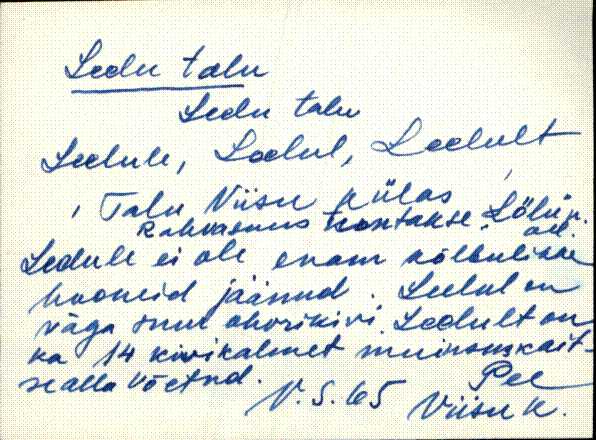 Leedu talu
Leedu talu
Leedule, Leedul, Leedult
, Talu Viisu külas
Rahvasuus
Leedule ei ole enam kõlbulikke
hooneid jäänud. Leedul on
väga suur ohvrikivi. Leedult on
ka 14 kivikalmet muinsuskait-
se alla võetud.
V. S. 65 Pee
Viisu k.